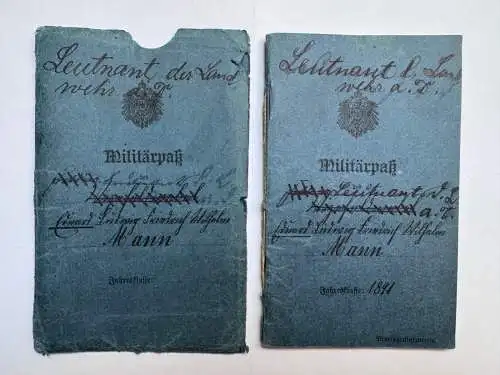 Leutnant der Land
wehr a. D.
Militärpaß
Eduard Ludwig Friedrich Wilhelm
Mann
Jahresklasse:
Leutnant d. Land
wehr a. D.
Militärpaß
Leutnant d. L.
a. D.
Eduard Ludwig Friedrich Wilhelm
Mann
Jahresklasse: 1891